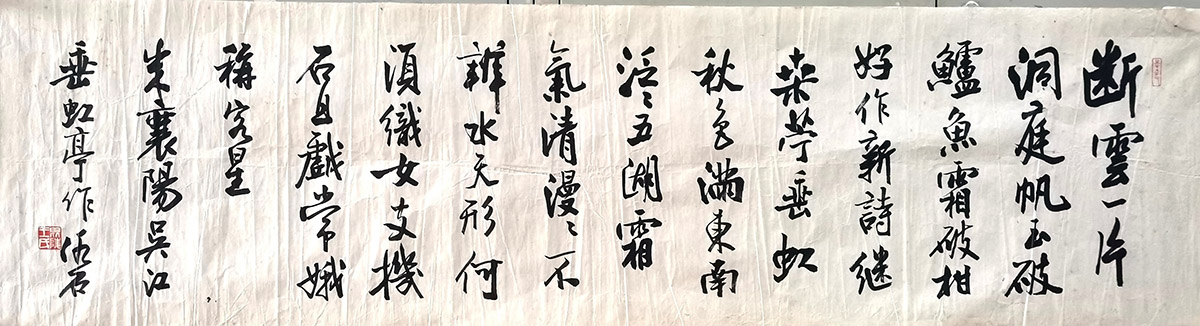 断雲一片
洞庭帆玉破
鱸魚霜破柑
好作新詩継
桑苧垂虹
秋色滿東南
泛〻五湖霜
氣清漫〻不
辨水天形何
須織女支機
石且戲常娥
稱客星
米襄陽吳江
垂虹亭作 石